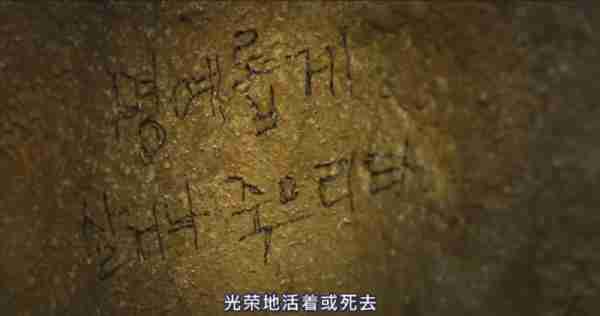 명예롭게
살거나 죽으리다
光荣地活着或死去